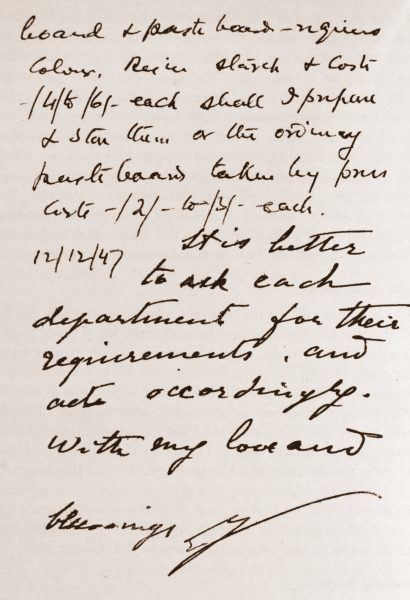 board & paste board - requires
colour, Resin starch & costs
-/4/- to /6/- each shall I prepare
& store them or the ordinary
paste boards taken by press
costs -/2/- to -/3/- each.
12/12/47 It is better
to ask each
department for their
requirements, and
act accordingly.
With my love and
blessings